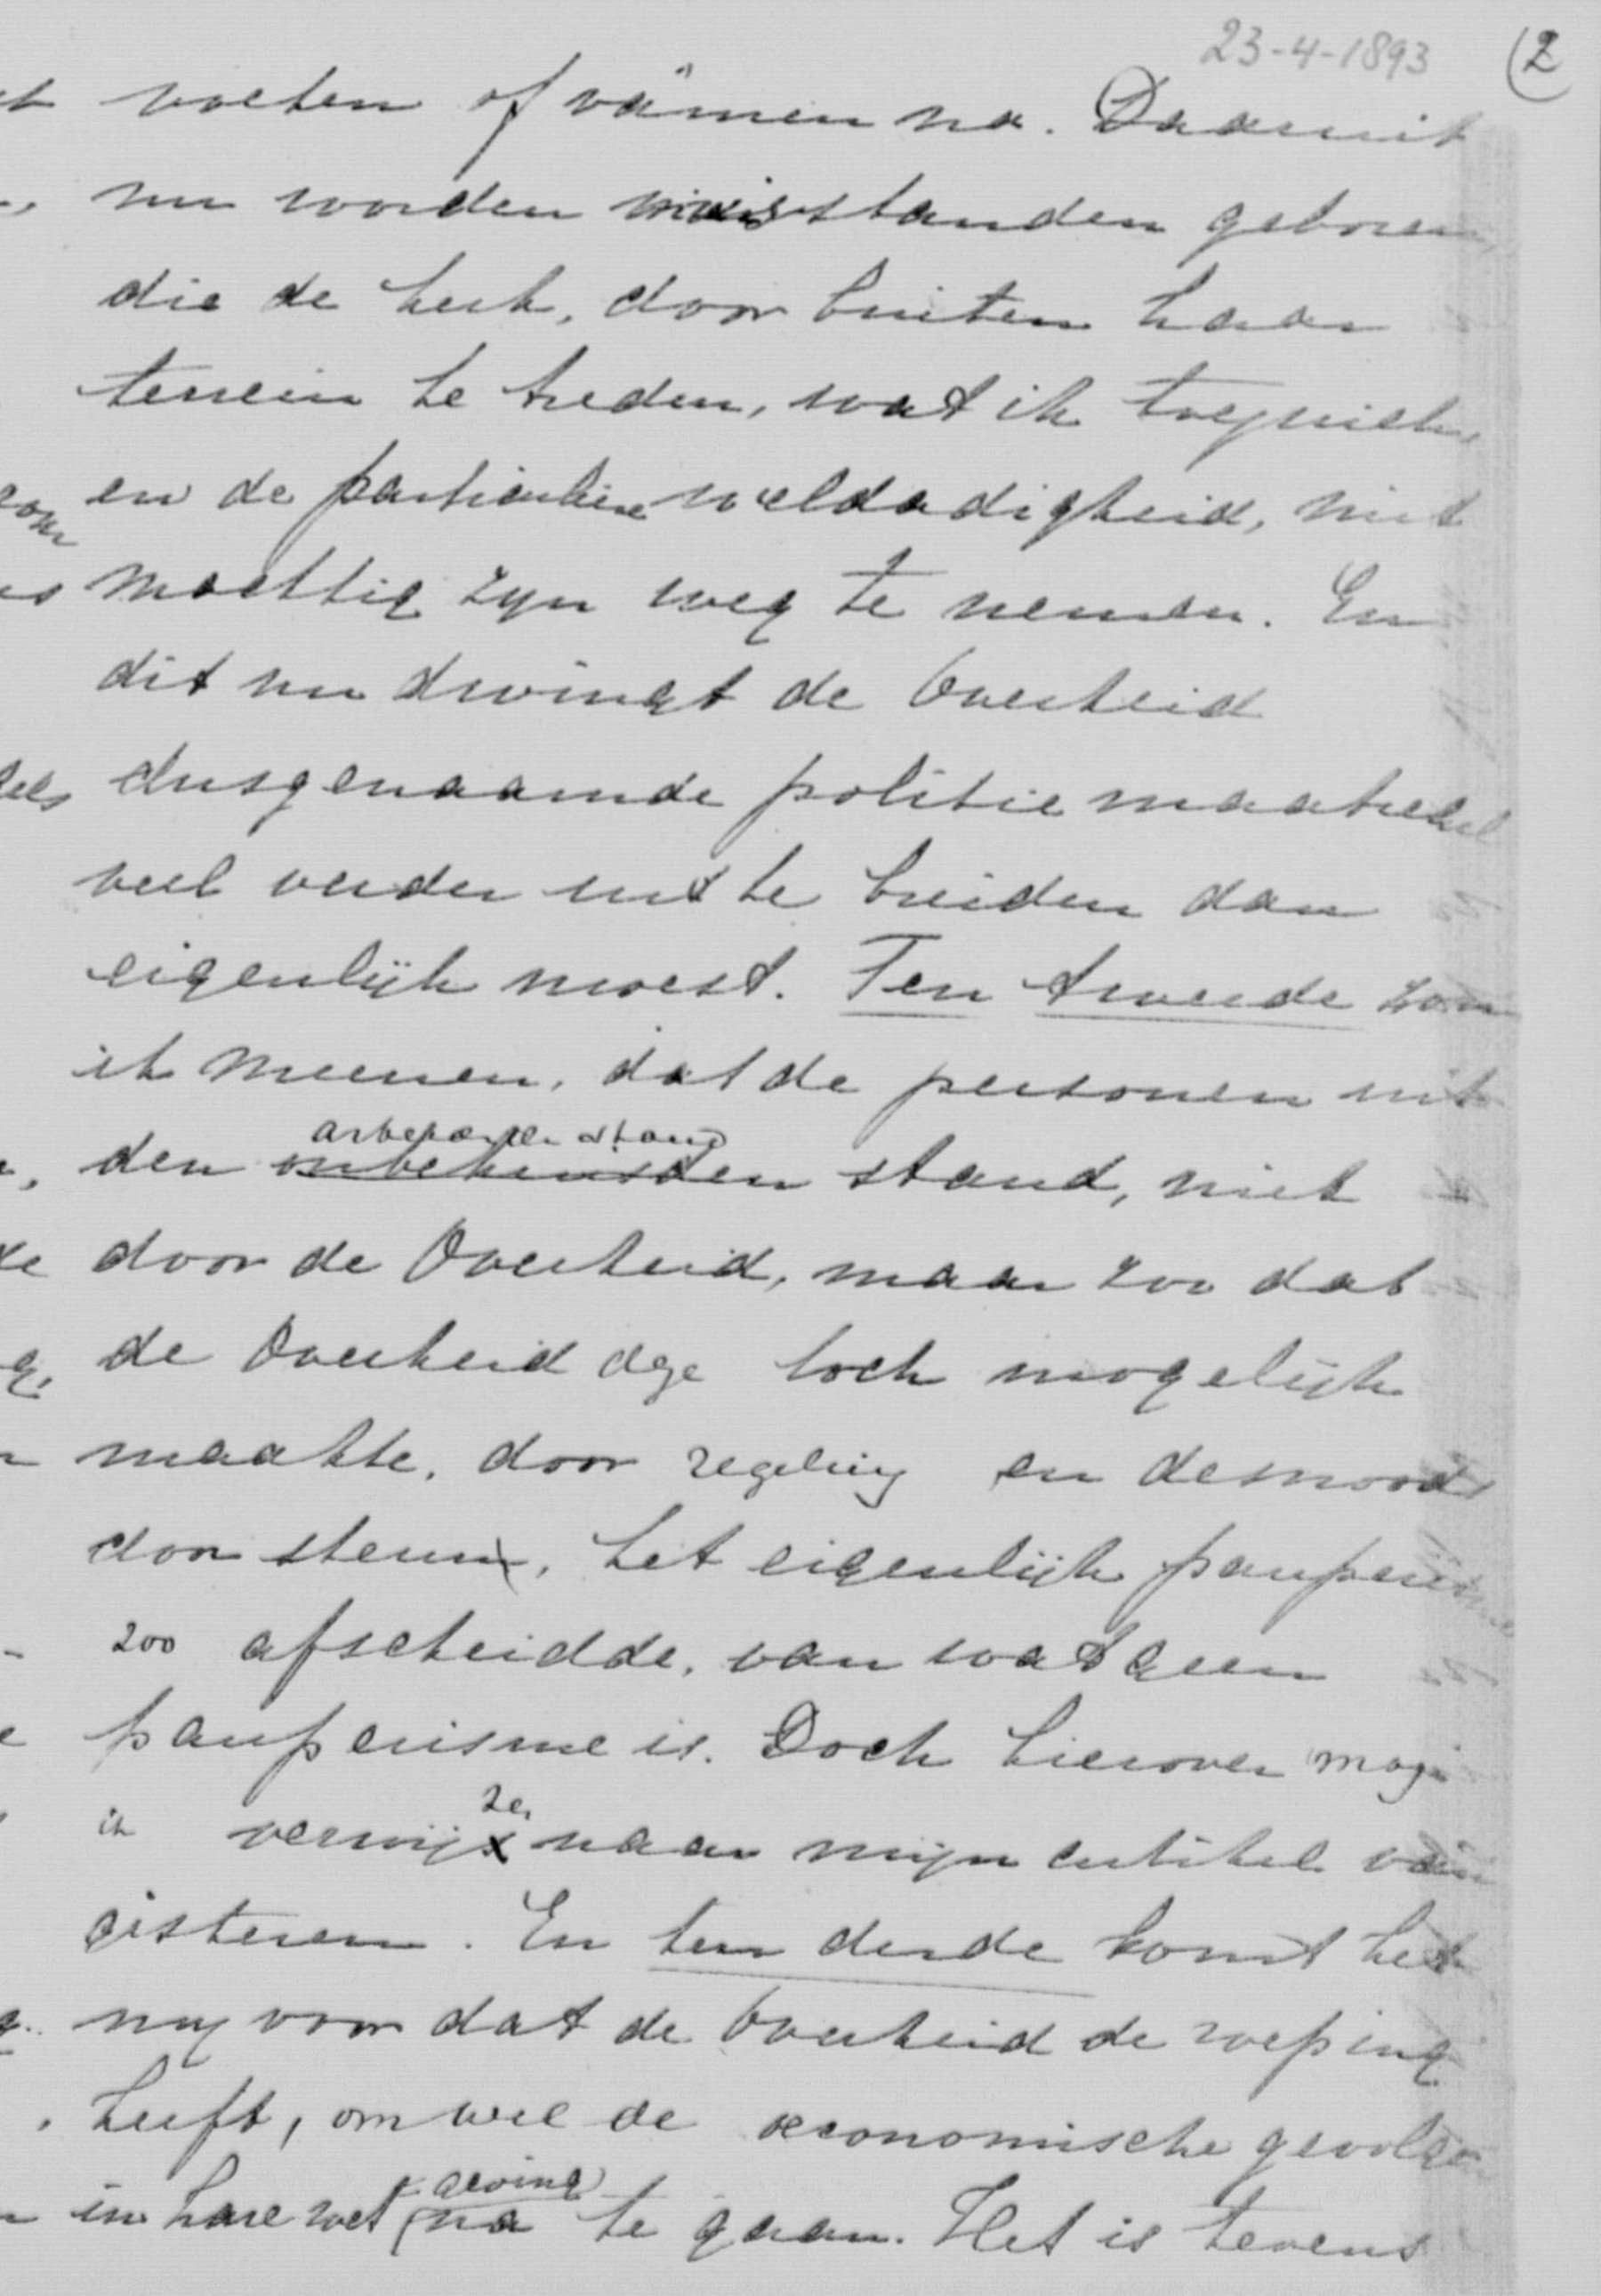 23-4-1893 (2
voeten of vamen na. Daaruit
nu worden misstanden geboren,
die de kerk, door buiten haar
terrein te treden, wat ik toejuich,
en de particuliere weldadigheid, niet
machtig zijn weg te nemen. En
dit nu dwingt de Overheid
dusgenaamde politie maatregel
veel verder uit te breiden dan
eigenlijk moest. Ten tweede zou
ik meenen, dat de personen uit
arbeidenden stand
den onbehuisden stand, niet
door de Overheid, maar zoo dat
de Overheid dge toch mogelijk
maakte, door regeling en desnoods
door steun, het eigenlijk pauperisme
zoo afscheidde, van wat geen
pauperisme is. Doch hierover mag
ik verwijzen naar mijn artikel van
gisteren. En ten derde komt het
mij voor dat de Overheid de roeping
heeft, om wel de economische gevolgen
in hare wetgeving na te gaan. Het is tevens